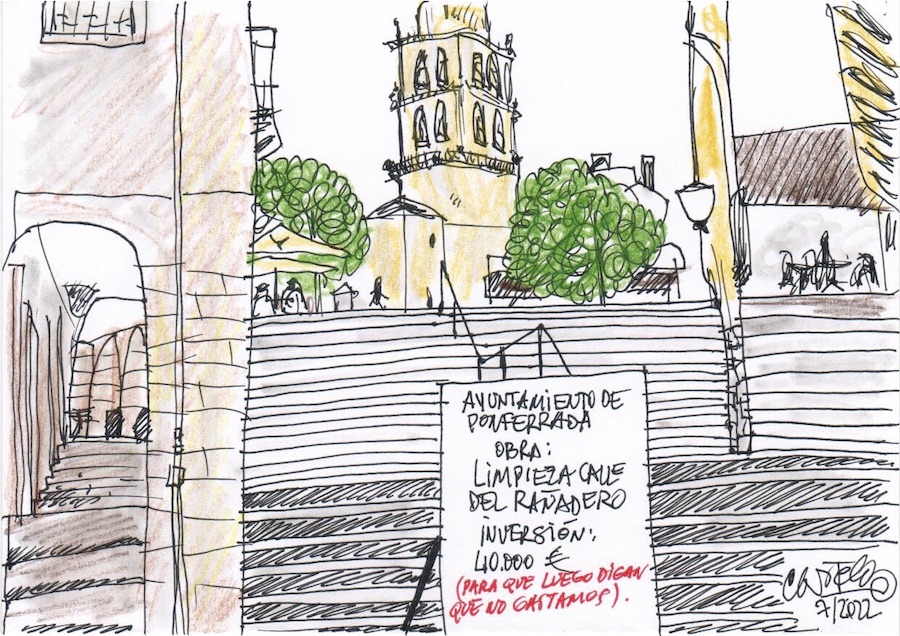 AYUNTAMIENTO DE
PONFERRADA
OBRA:
LIMPIEZA CALLE
DEL RAÑADERO
INVERSIÓN:
40.000 €
(PARA QUE LUEGO DIGAN
QUE NO GASTAMOS).
7/2022